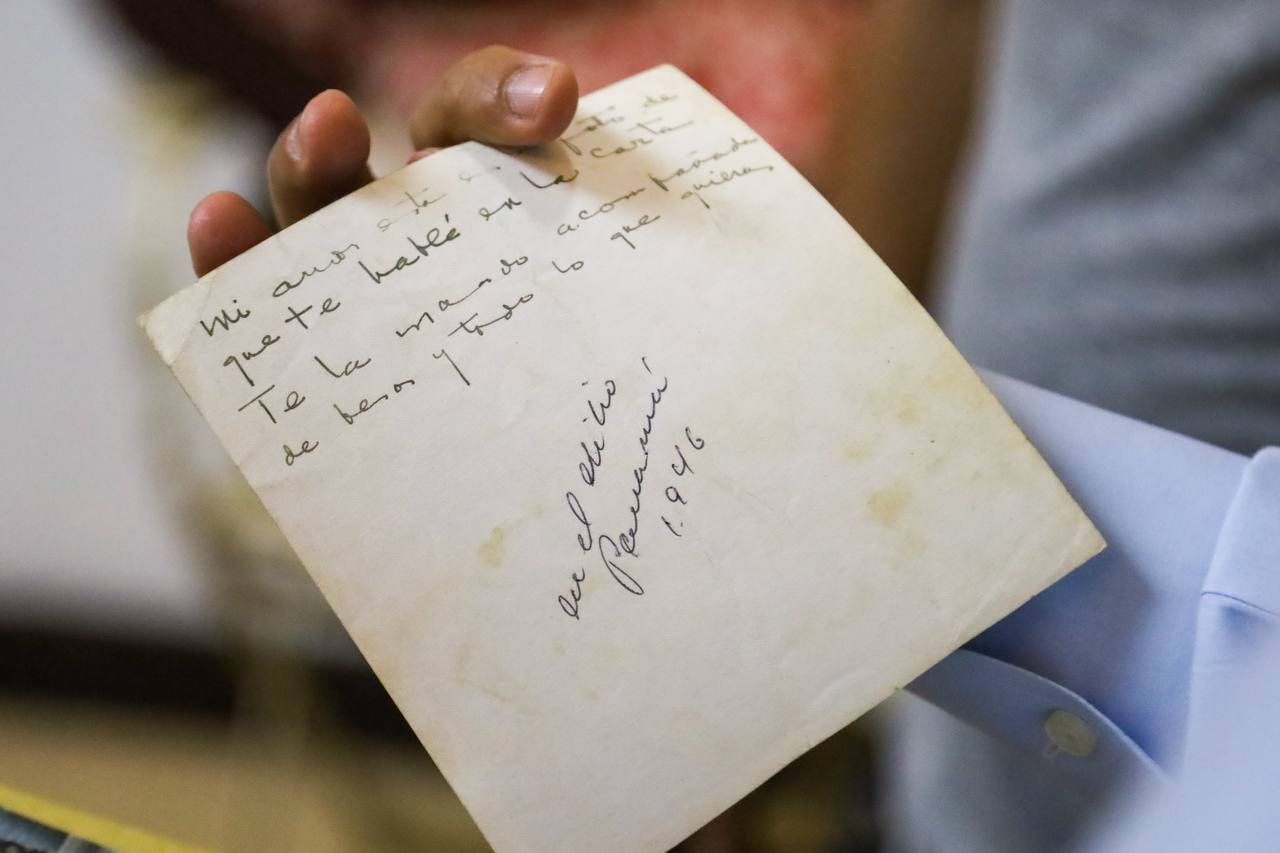 Mi amor esta es la foto de
que te hablé en la carta
Te la mando acompañada
de besos y todo lo que quieras
en el exilio
Panamá
1.946